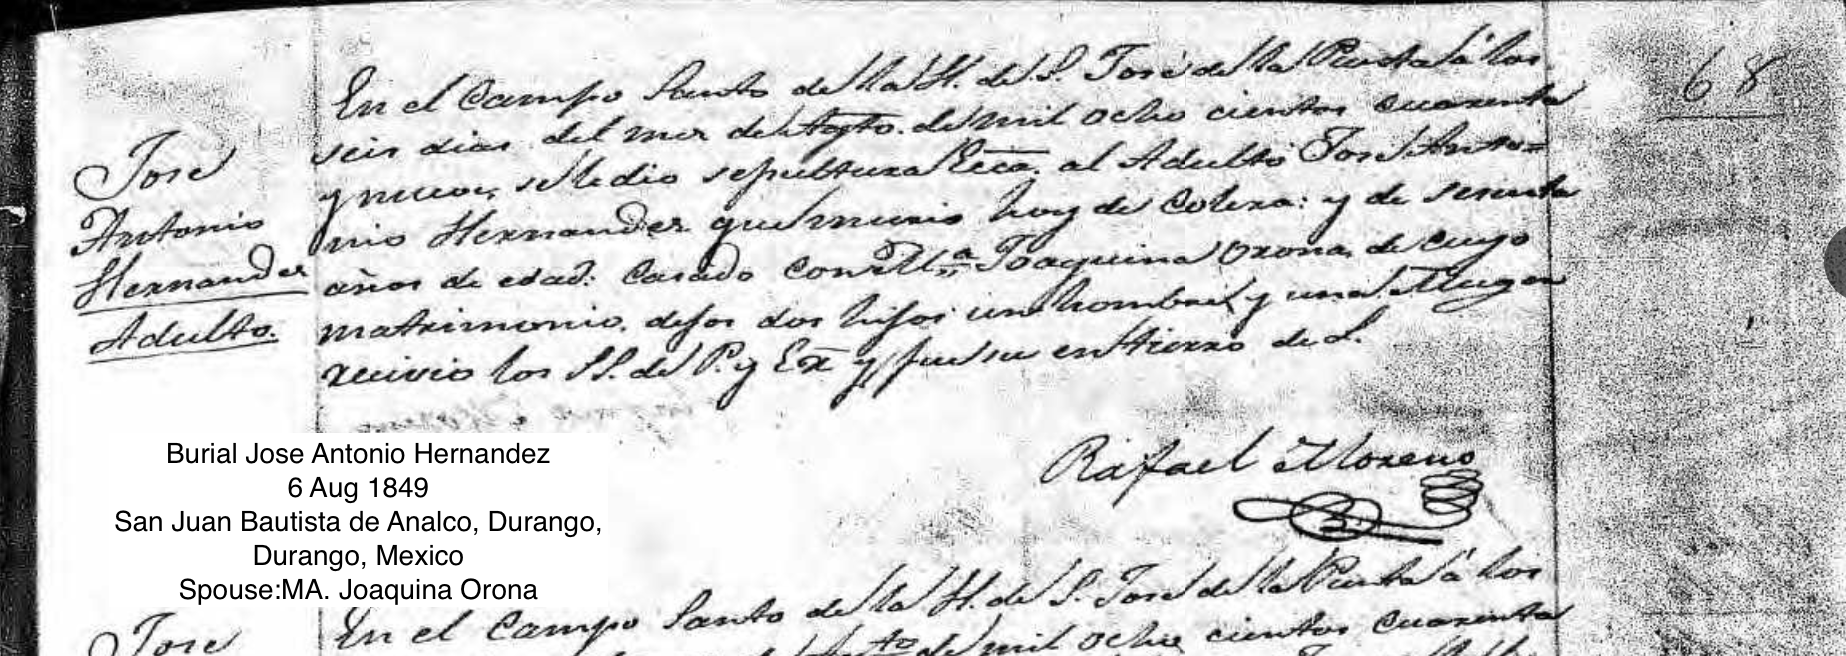 68
Jose
Antonio
Hernandez
Adulto.
En el Campo Santo de la H. de S. José de la Punta á los
seis dias del mes de Agto. de mil ocho cientos cuarenta
y nueve, se le dio sepultura Ecca. al Adulto José Anto=
nio Hernandez que murio hoy de Colera: y de sesenta
años de edad: Casado con M.a Joaquina Orona, de cuyo
matrimonio, dejos dos hijos un hombre y una Muger
recivio los SS. de P. y Ex y fue su entierro de L.
Rafael Moreno
Burial Jose Antonio Hernandez
6 Aug 1849
San Juan Bautista de Analco, Durango,
Durango, Mexico
Spouse:MA. Joaquina Orona
Jose
En el Campo Santo de la H. de S. José de la Punta á los
de mil ocho cientos cuarenta